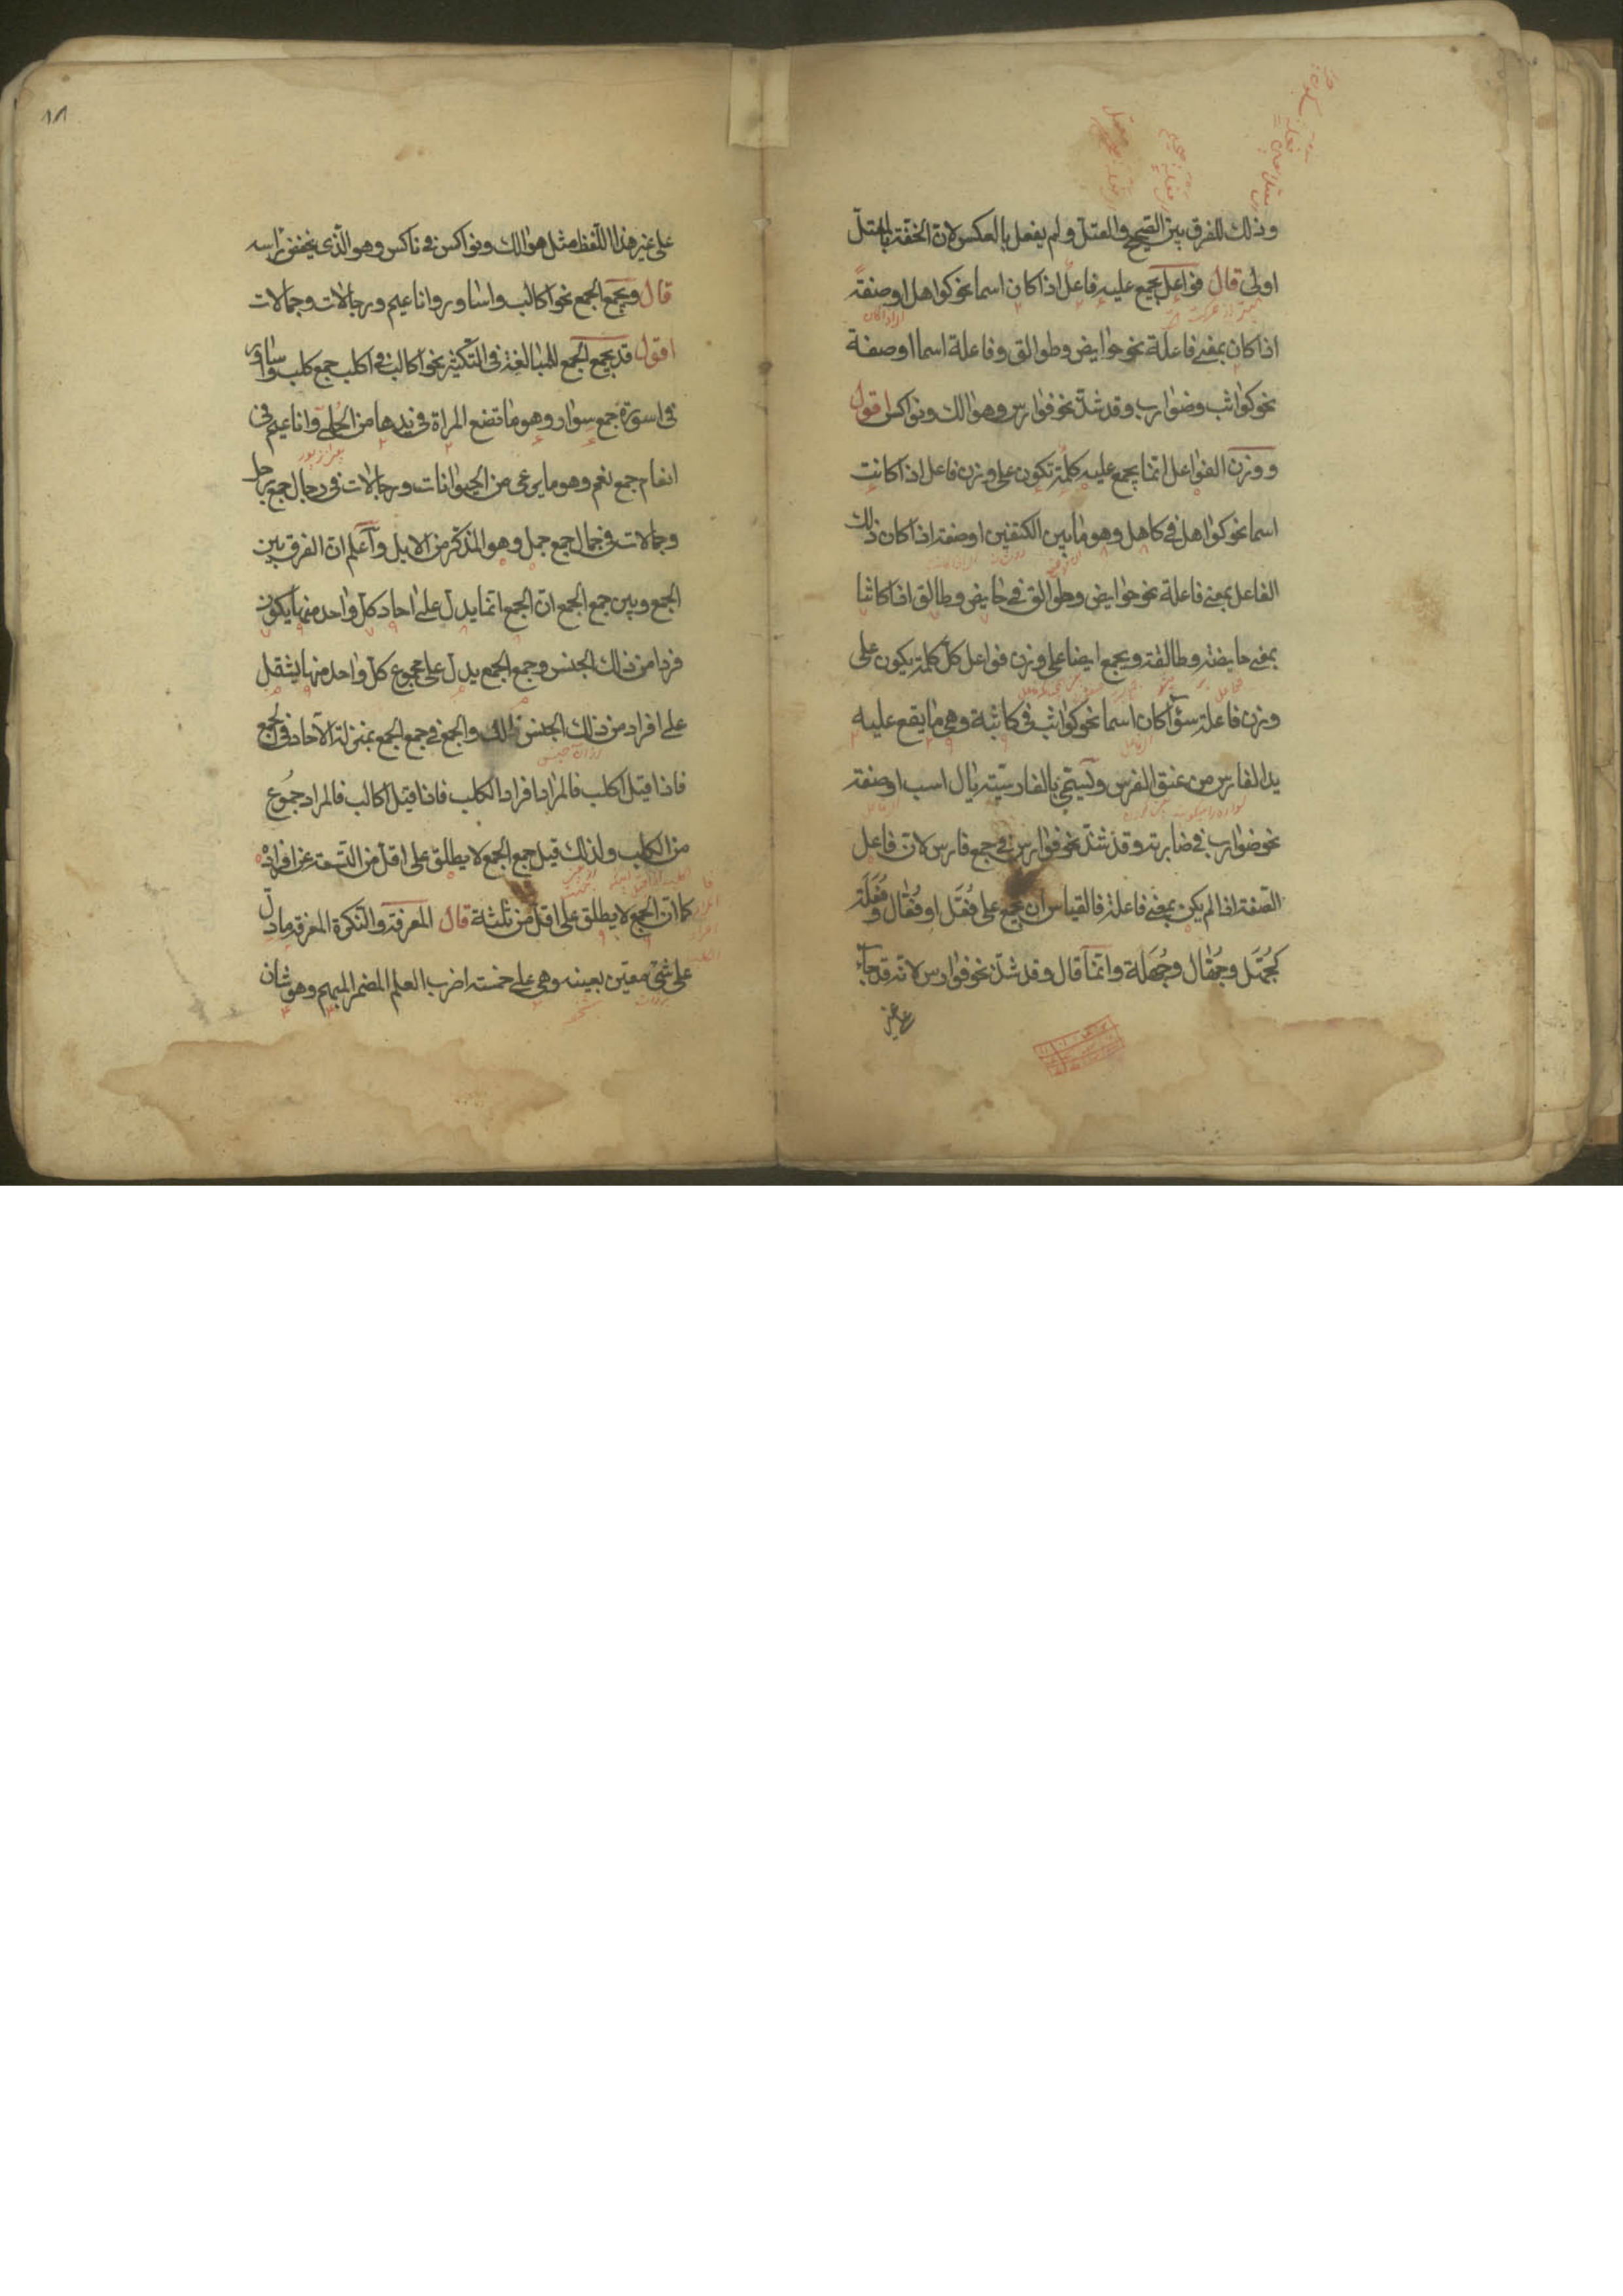 وذلك للفرق بين الصحيح والمعتل ولم يفعل بالعكس لان الخفة بالمعتل
اولى قال فواعل يجمع عليه فاعل اذا كان اسما نحو كواهل او صفة
اذا كان بمعنى فاعلة نحو حوايض وطوالق وفاعلة اسما او صفة
نحو كواثب وضوارب وقد شذ نحو فوارس وهوالك ونواكس اقول
ووزن الفواعل انما يجمع عليه كلمة تكون على وزن فاعل اذا كانت
اسما نحو كواهل في كاهل وهو ما بين الكتفين او صفة اذا كان ذلك
الفاعل بمعنى فاعلة نحو حوايض وطوالق في حايض وطالق اذا كانتا
بمعنى حايضة وطالقة ويجمع ايضا على وزن فواعل كل كلمة يكون على
وزن فاعلة سوآء كان اسما نحو كواثب في كاثبة وهى ما يقع عليه
يد الفارس من عنق الفرس ويسمى بالفارسية يال اسب او صفة
نحو ضوارب في ضاربة وقد شذ نحو فوارس في جمع فارس لان فاعل
الصفة اذا لم يكن بمعنى فاعلة فالقياس ان يجمع على فُعَّل او فُعّال وفُعَلَة
كجُهَّل وجُهّال وجُهَلة وانما قال وقد شذ نحو فوارس لانه قد جآء
على غير
١٨
على غير هذا اللفظ مثل هوالك ونواكس في ناكس وهو الّذى يخفض راسه
قال ويجمع الجمع نحو اكالب واساور واناعيم ورجالات وجمالات
اقول قد يجمع الجمع للمبالغة في التكثير نحو اكالب في اكلب جمع كلب واساور
في اسورة جمع سوار وهو ما تضع المراة في يدها من الحلى واناعيم في
انعام جمع نعم وهو ما يرعى من الحيوانات ورجالات في رجال جمع رجل
وجمالات في جمال جمع جمل وهو المذكر من الابل وآعلم ان الفرق بين
الجمع وبين جمع الجمع ان الجمع انما يدل على احاد كل واحد منها يكون
فردا من ذلك الجنس وجمع الجمع يدل على مجموع كل واحد منها يشتمل
على افراد من ذلك الجنس والجمع في جمع الجمع بمنزلة الآحاد في الجمع
فاذا قيل اكلب فالمراد افراد الكلب فاذا قيل اكالب فالمراد جموع
من الكلب ولذلك قيل جمع الجمع لا يطلق على اقل من التسعة من افراده
كما ان الجمع لا يطلق على اقل من ثلثة قال المعرفة والنكرة المعرفة ما دلّ
على شئ معين بعينه وهى على خمسة اضرب العلم المضمر المبهم وهو شان